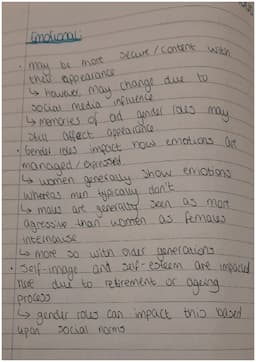 Emotional:
• may be more secure / content with
their appearance
↳ however, may change due to
social media influence
↳ memories of old gender roles may
still affect appearance
• Gender roles impact how emotions are
managed / expressed
↳ women generally show emotions
whereas men typically don't
↳ males are generally seen as more
agressive than women as females
internalise
↳ more so with older generations
• Self-image and self-esteem are impacted
here due to retirement or ageing
process
↳ gender roles can impact this based
upon social norms